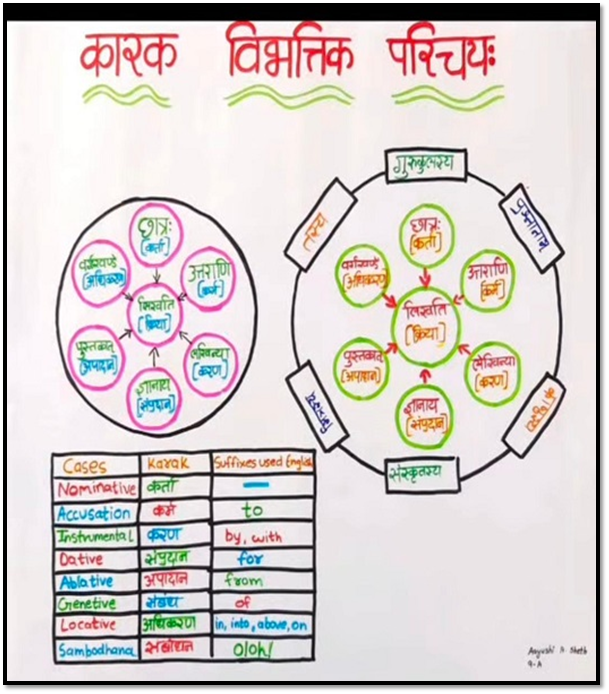 कारक विभक्तिक परिचयः
छात्रः
[कर्ता]
वर्गखण्डे
[अधिकरण]
उत्तराणि
[कर्म]
लिखति
[क्रिया]
पुस्तकात्
[अपादान]
लेखिन्या
[करण]
ज्ञानाय
[संप्रदान]
गुरुकुलस्य
तस्य
प्रश्नानाम्
छात्रः
[कर्ता]
वर्गखण्डे
[अधिकरण]
उत्तराणि
[कर्म]
लिखति
[क्रिया]
पुस्तकात्
[अपादान]
लेखिन्या
[करण]
ज्ञानाय
[संप्रदान]
संस्कृतस्य
Cases Karak Suffixes used English
Nominative कर्ता —
Accusation कर्म to
Instrumental करण by, with
Dative संप्रदान for
Ablative अपादान from
Genetive संबंध of
Locative अधिकरण in, into, above, on
Sambodhana संबोधन O!oh!
Aayushi A Sheth
9-A